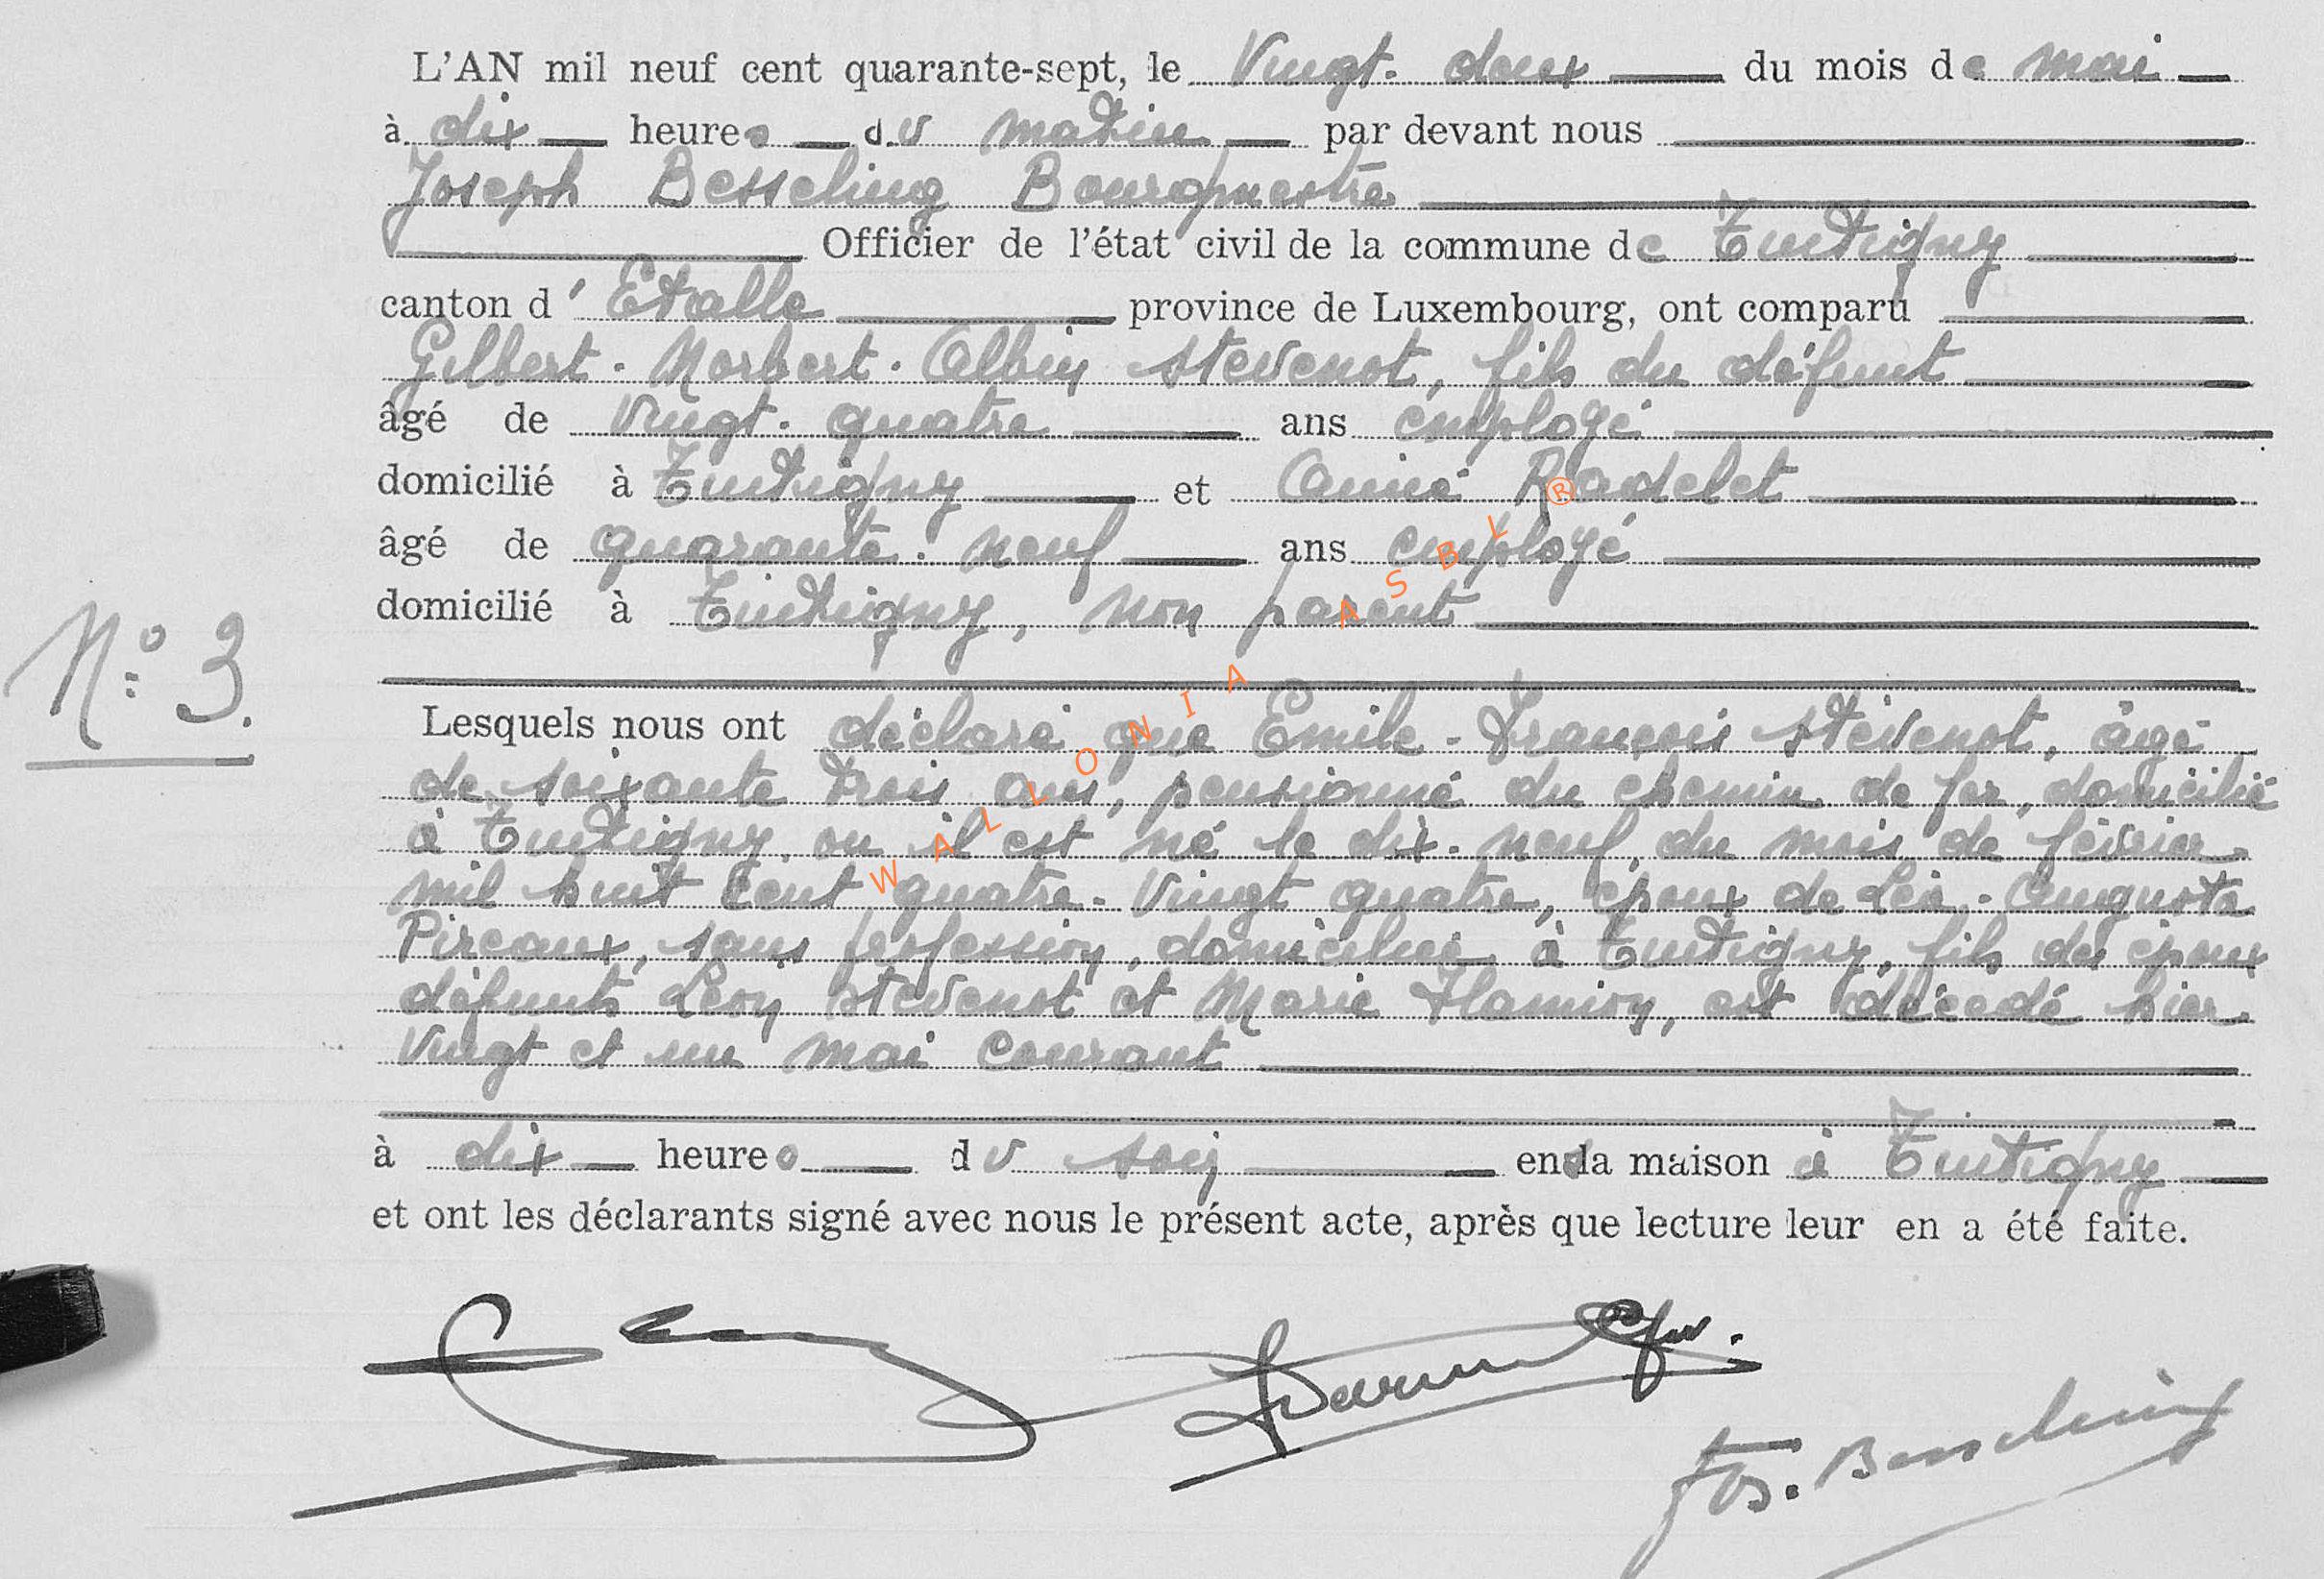 L'AN mil neuf cent quarante-sept, le Vingt. deux du mois de mai
à dix heures du matin par devant nous
Joseph Besseling Bourgmestre
Officier de l'état civil de la commune de Tintigny
canton d' Etalle province de Luxembourg, ont comparu
Gilbert. Norbert. Albin Stévenot, fils du défunt
âgé de Vingt. quatre ans employé
domicilié à Tintigny et Aimé Radelet
âgé de quarante. neuf ans employé
domicilié à Tintigny, non parent
N° 3.
Lesquels nous ont déclaré que Emile - François Stévenot, âgé
de soixante trois ans, pensionné du chemin de fer, domicilié
à Tintigny, ou il est né le dix. neuf, du mois de février
mil huit cent quatre. Vingt quatre, époux de Léa - Augusta
Pireaux, sans profession, domiciliée à Tintigny, fils des époux
défunts Léon Stévenot et Marie Hamion, est décédé hier
Vingt et un mai courant
à dix heures du soir en sa maison à Tintigny
et ont les déclarants signé avec nous le présent acte, après que lecture leur en a été faite.
Jos. Besseling
WALLONIA ASBL ®